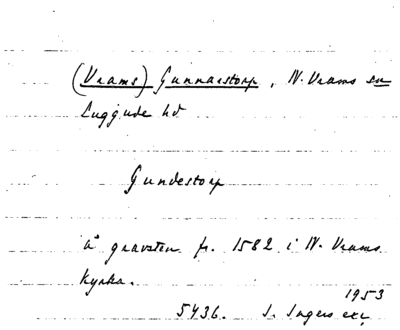 (Vrams) Gunnarstorp, N. Vrams sn
Luggude hd
Gundestorp
å gravsten fr. 1582 i N. Vrams
kyrka.
1953
5436. I. Ingers exc